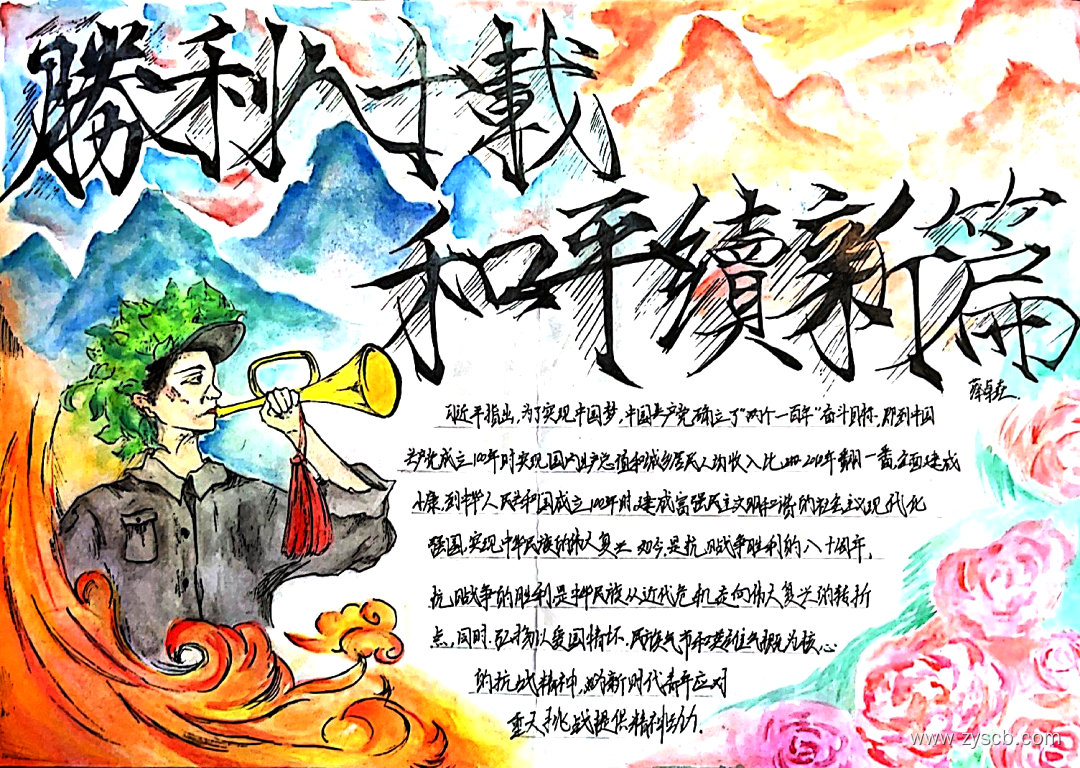 勝利八十載
和平續新篇
薛卓垚
习近平指出，为了实现中国梦，中国共产党确立了“两个一百年”奋斗目标，即到中国
共产党成立100年时实现国内生产总值和城乡居民人均收入比2010年翻一番，全面建成
小康，到中华人民共和国成立100年时，建成富强民主文明和谐的社会主义现代化
强国，实现中华民族的伟大复兴，如今是抗日战争胜利的八十周年，
抗日战争的胜利是中华民族从近代危机走向伟大复兴的转折
点，同时，弘扬以爱国情怀、民族气节和英雄气概为核心
的抗战精神，为新时代青年应对
重大挑战提供精神
www.zyscb.com